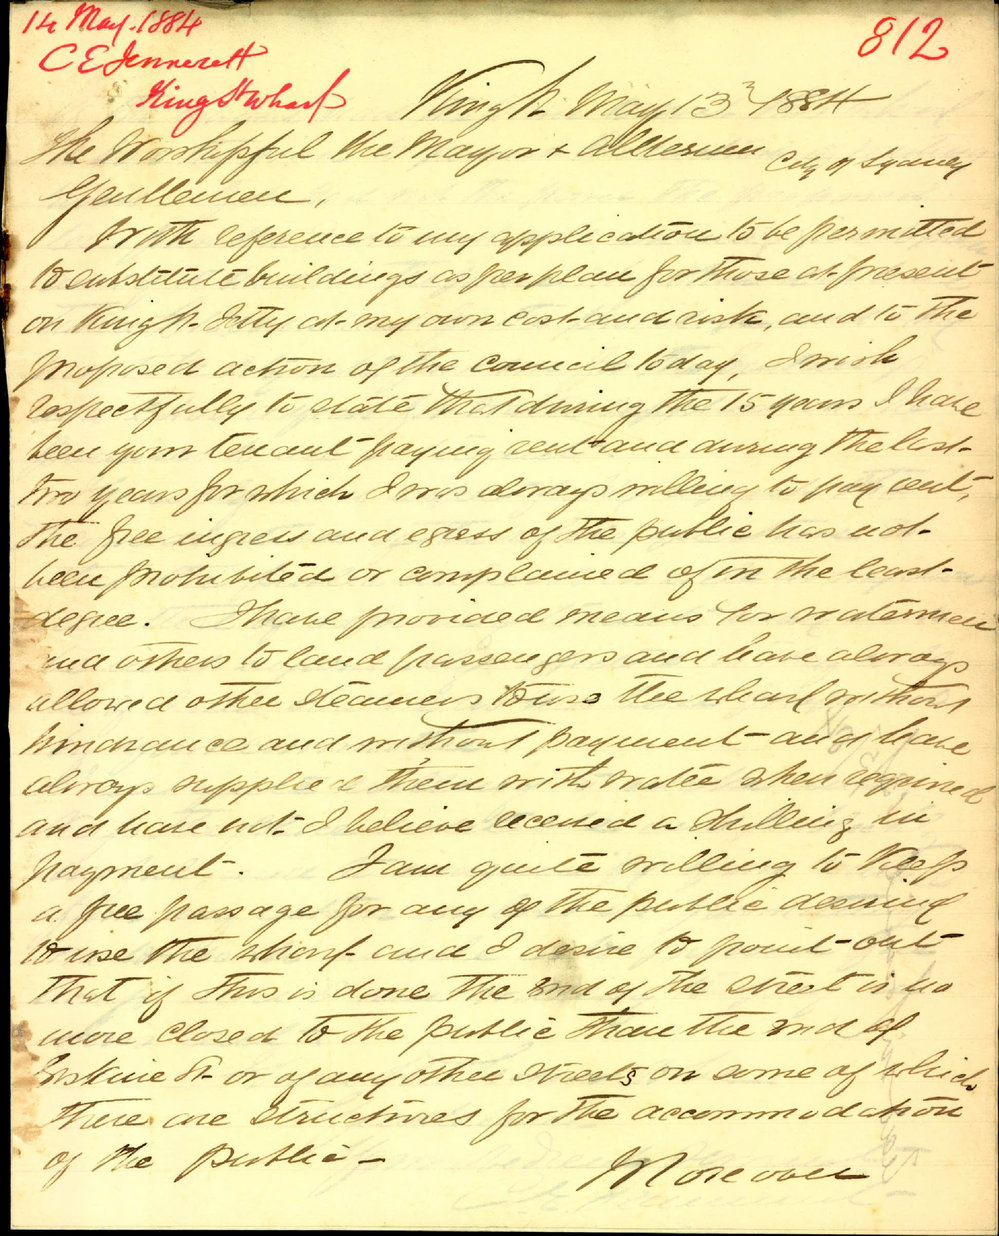 14 May. 1884
C E Jennerett
King St Wharf
812
King St. May 13 1884
The Worshipful the Mayor & Aldermen City of Sydney
Gentlemen,
With reference to my application to be permitted
to substitute buildings as per plan for those at present
on King St. Jetty at my own cost and risk, and to the
proposed action of the Council today, I wish
respectfully to state that during the 15 years I have
been your tenant paying rent and during the last
two years for which I was always willing to pay rent,
the free ingress and egress of the public has not
been prohibited or complained of in the least
degree. I have provided means for watermen
and others to land passengers and have always
allowed other steamers to use the wharf without
hindrance and without payment and have
always supplied them with water when required
and have not I believe received a shilling in
payment. I am quite willing to keep
a free passage for any of the public desiring
to use the wharf and I desire to point out
that if this is done the end of the street is no
more closed to the public than the end of
Erskine St. or of any other streets on some of which
there are structures for the accommodation
of the public -
Moreover